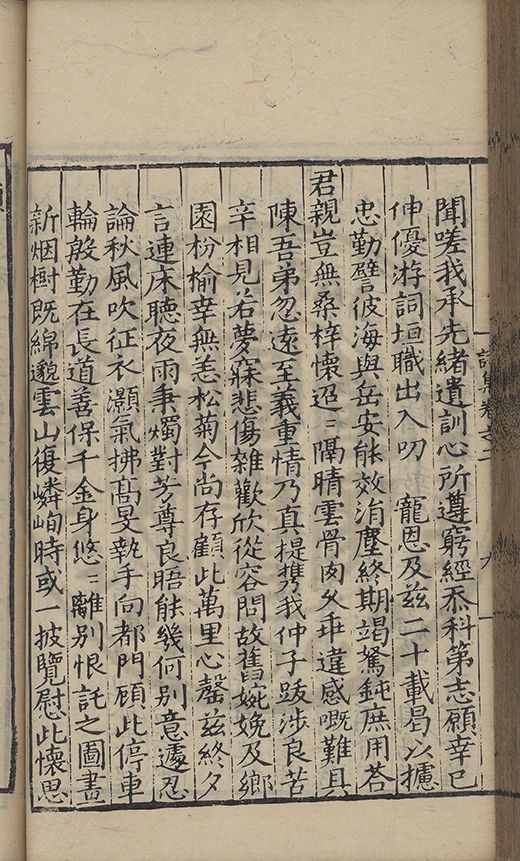 聞嗟我承先緒遺訓心所遵窮經忝科第志願幸已
伸優游詞垣職出入叨 寵恩及兹二十載曷以攄
忠勤譬彼海與岳安能效涓塵終期竭駑鈍庶用荅
君親豈無桑梓懷迢〻隔晴雲骨肉久乖違感嘅難具
陳吾弟忽遠至義重情乃真提携我仲子跋涉良苦
辛相見若夢寐悲傷雜歡欣從容問故舊婉娩及鄉
園枌榆幸無恙松菊今尚存顧此萬里心罄兹終夕
言連床聽夜雨秉燭對芳尊良晤能幾何别意遽忍
論秋風吹征衣灝氣拂高旻執手向都門顧此停車
輪殷勤在長道善保千金身悠〻離别恨託之圖畫
新烟樹既綿邈雲山復嶙峋時或一披覽慰此懷思
詩集卷之二 九